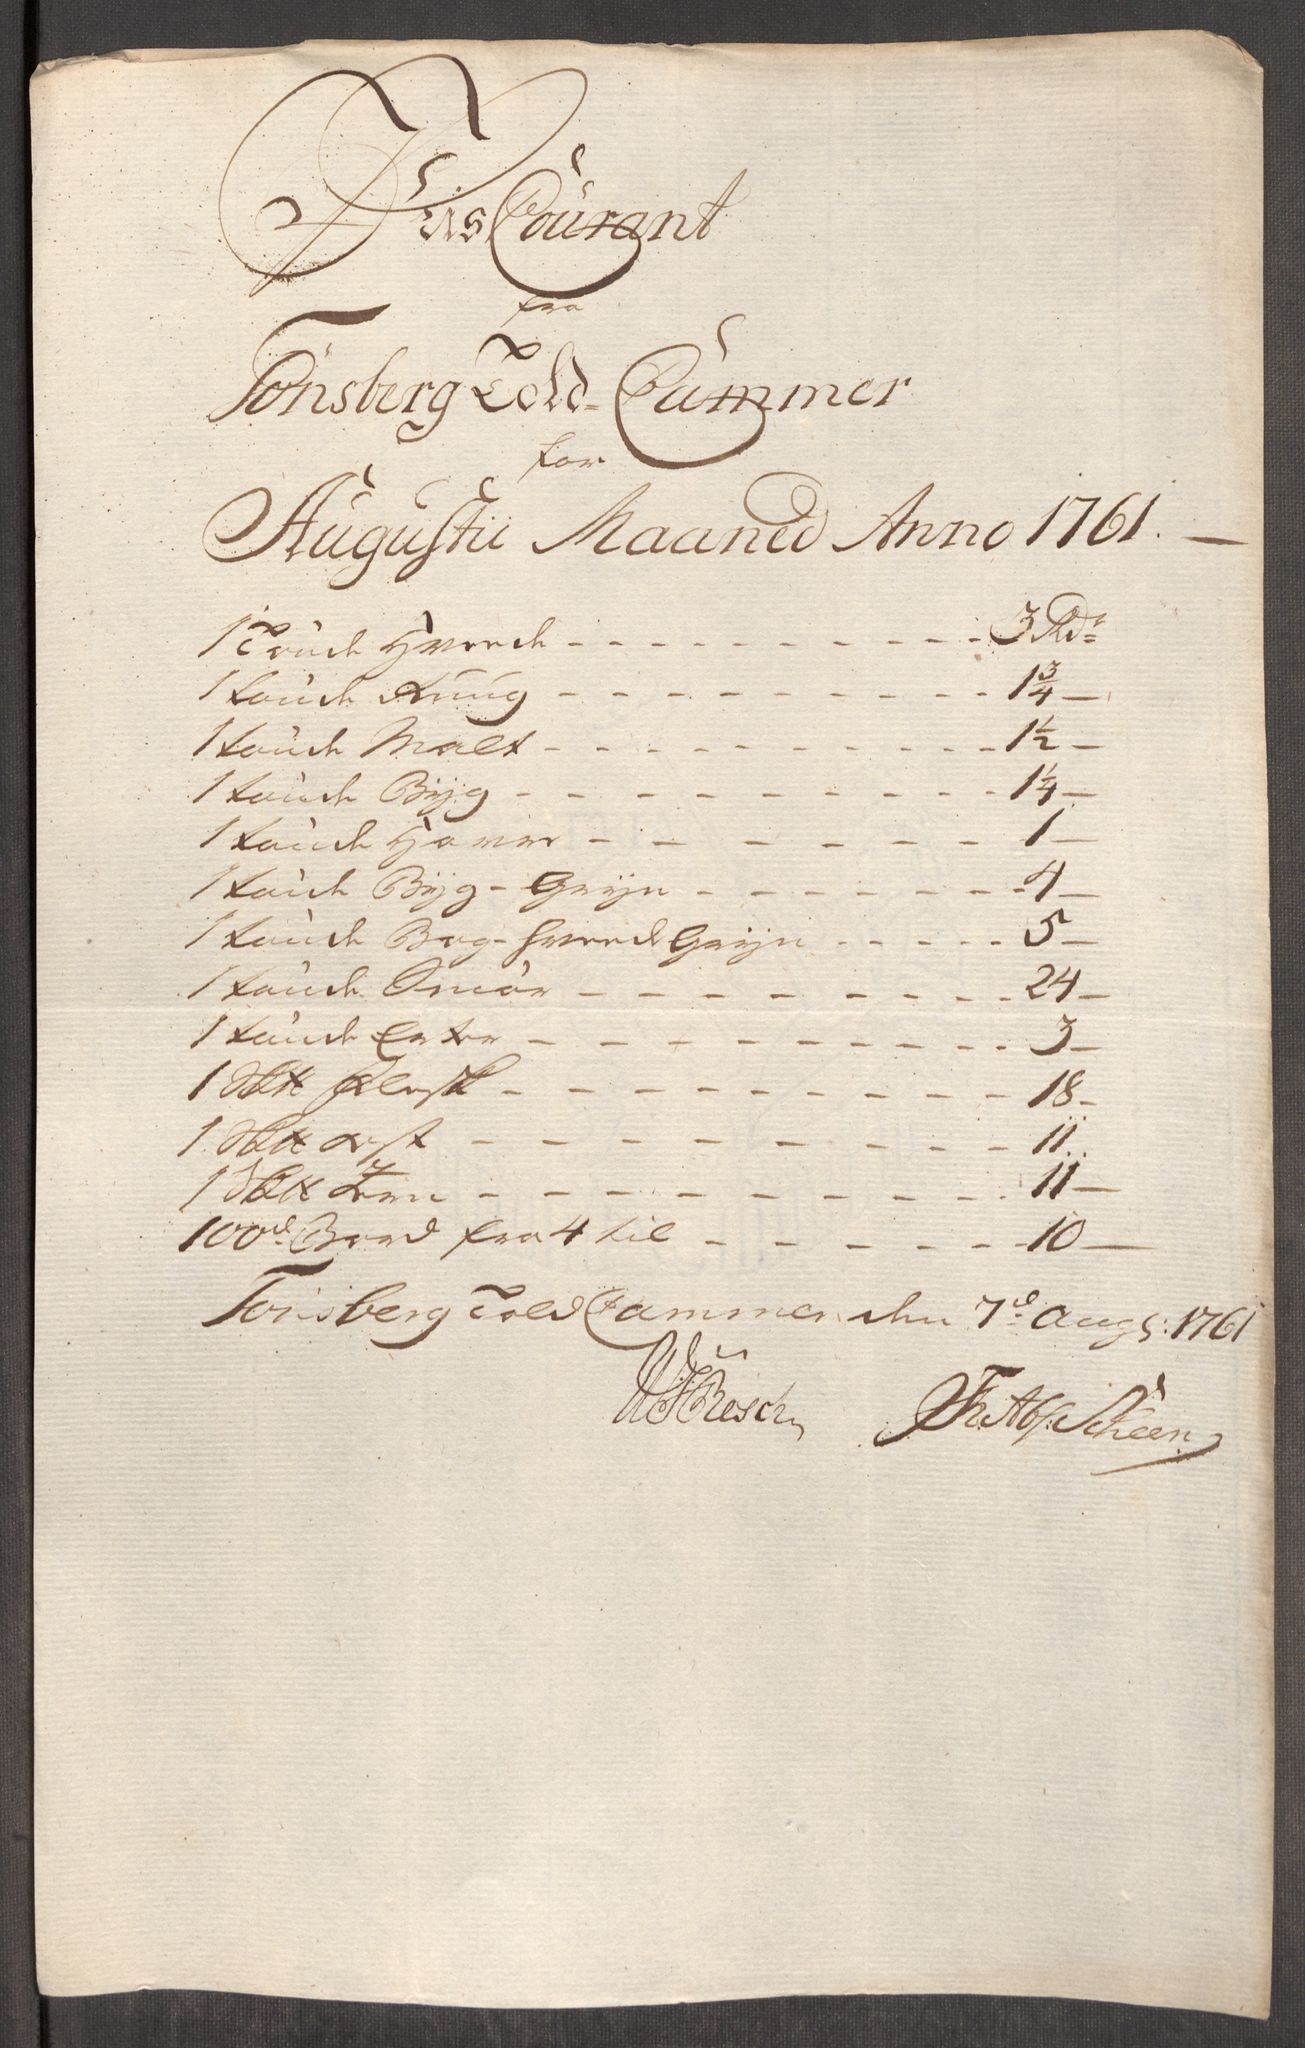 Priis Courant
fra
Tönsberg Told-Cammer
for
Augustii Maaned Anno 1761. —
1 Tönde Hvede - - - 3 Rdr
1 tönde Rüug - - - 1 3/4 —
1 tönde Malt - - - 1 1/2 —
1 tönde Bÿg - - - 1 1/4 —
1 tönde Havre - - - 1 —
1 tönde Bÿg-Grÿn - - - 4 —
1 tönde Bog-hvede Grÿn - - - 5 —
1 tönde Smör - - - 24 —
1 tönde Erter - - - 3 —
1 Sk℔ Flesk - - - 18 -
1 Sk℔ ost - - - 11 -
1 Sk℔ Jern - - - 11 —
100d Bord fra 4 til - - - 10 —
Tönsberg Told Cammer den 7d Aug: 1761